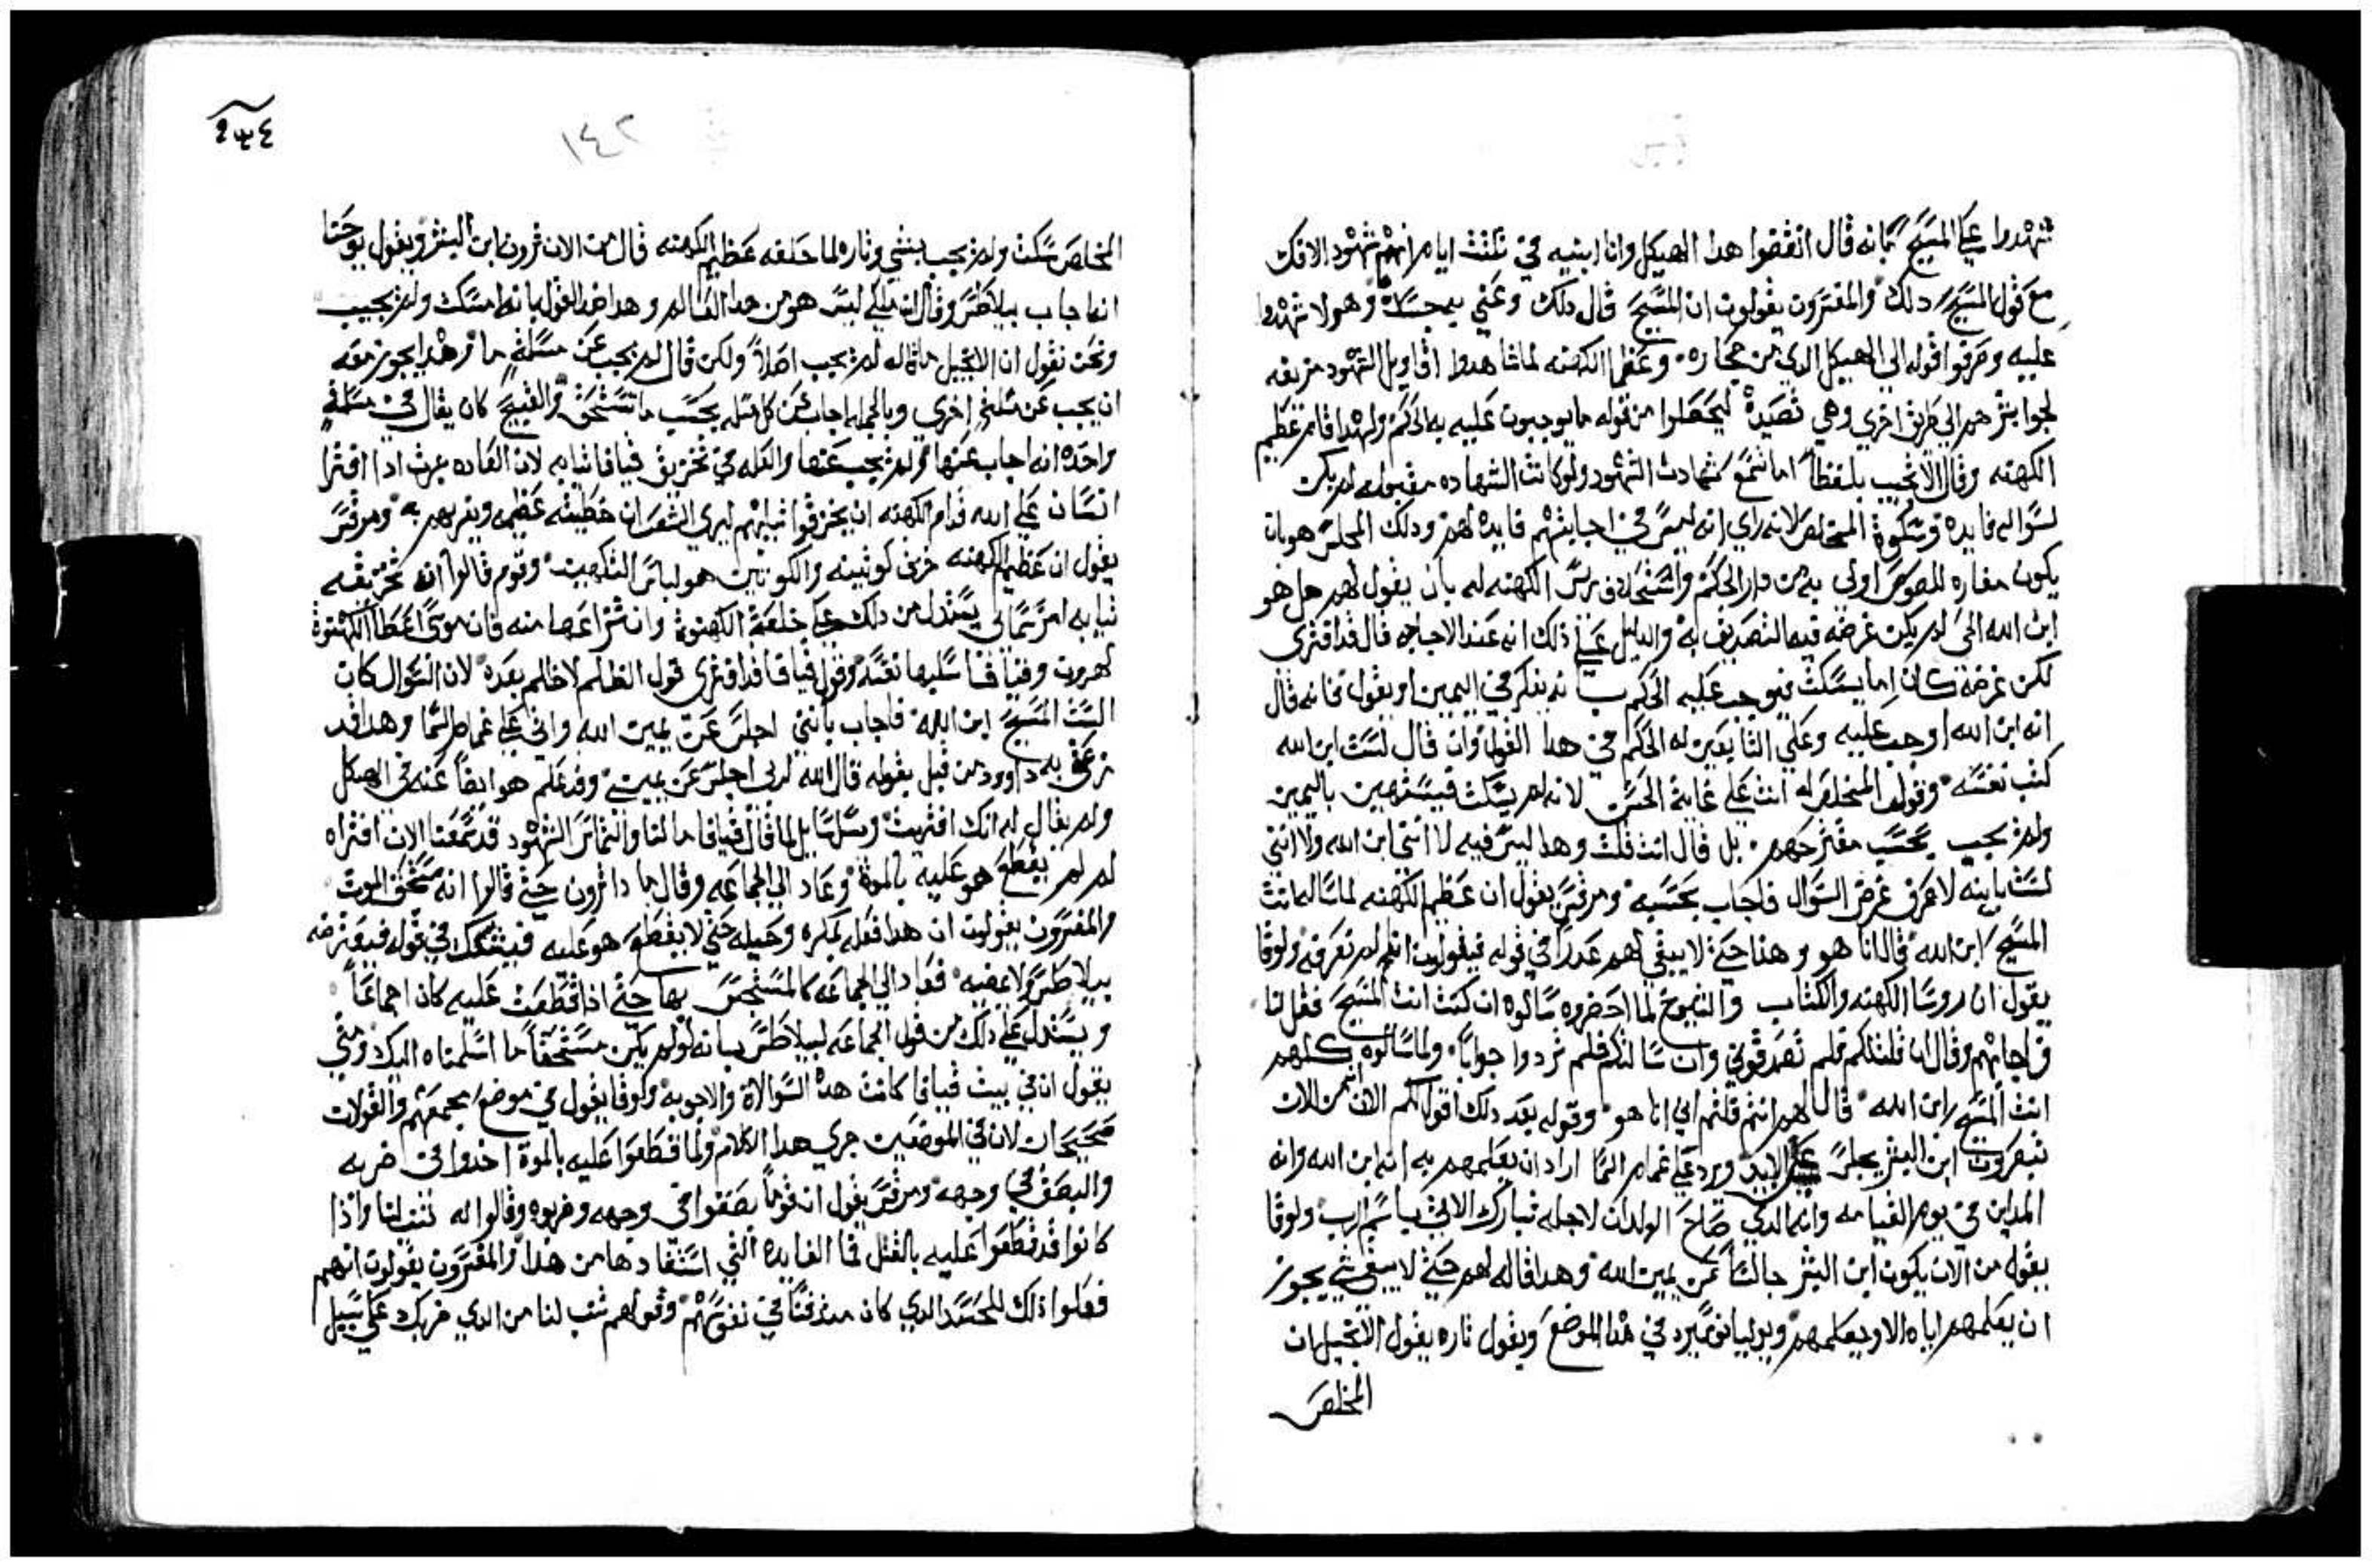 شهدوا علي المسيح بانه قال انقضوا هدا الهيكل وانا ابنيه في تلثت ايام انهم شهود الافك
مع قول المسيح دلك والمفسرون يقولون ان المسيح قال دلك وعني به جسده وهولا شهدوا
عليه وحرفوا قوله الي الهيكل الدي من حجاره وعظما الكهنه لما شاهدوا اقاويل الشهود مزيفه
لجوا بشرهم الي طريق اخري وهي تصيده ليحصلوا من قوله ما يوجبون عليه به الحكم ولهدا قام عظيم
الكهنه وقال الا تجيب بلفظه اما تسمع شهادت الشهود ولو كانت الشهاده مقبوله لم يكن
لسواله فايده وسكوت المخلص لانه راي انه ليس في اجابتهم فايده لهم ودلك المجلس هو بان
يكون مغاره للصوص اولي به من دار الحكم واستحلاف رييس الكهنه له بان يقول لهم هل هو
ابن الله الحي لم يكن غرضه فيه التصديق له والدليل علي ذلك انه عند الاجابه قال قد افتري
لكن غرضه كان اما يسكت فيوجب عليه الحكم بانه يفكر في اليمين او يقول فانه قال
انه ابن الله اوجب عليه وعلي التابعين له الحكم في هدا القول وان قال لست ابن الله
كدب نفسه وقول المخلص له انت علي غاية الحسن لانه لم يسكت فيستهين باليمين
ولم يجيب بحسب مقترحهم بل قال انت قلت وهدا ليس فيه لا انني ابن الله ولا انني
لست بابنه لاعرف غرض السوال فاجاب بحسبه ومرقس يقول ان عظيم الكهنه لما ساله انت
المسيح ابن الله قال انا هو وهدا حتي لا يبقي لهم عدرا في قوله فيقولون انهم لم نعرفه ولوقا
يقول ان روسا الكهنه والكتاب والشيوخ لما احضروه سالوه ان كنت انت المسيح فقل لنا
فاجابهم وقال ان قلت لكم فلم تصدقوني وان سالتكم فلم تردوا جوابا ولما سالوه كلهم
انت المسيح ابن الله قال لهم انتم قلتم اني انا هو وقوله بعد دلك اقول لكم الان انكم من الان
تبصرون ابن البشر يجلس علي الايد ويرد علي غمام السما اراد ان يعلمهم به انه ابن الله وانه
المداين في يوم القيامه وانه الدي صاح الولدان لاجله تبارك الاتي باسم الرب ولوقا
يقول من الان يكون ابن البشر جالسا عن يمين الله وهدا قاله لهم حتي لا يبقي شي يجوز
ان يعلمهم اياه الا ويعلمهم ويوليانوس يرد في هدا الموضع ويقول تاره يقول الانجيل ان
المخلص
٢٣٤
١٤٢
المخلص سكت ولم يجيب بشي وتاره لما حلفه عظيم الكهنه قال من الان ترون ابن البشر ويقول يوحنا
انه اجاب بيلاطس وقال ان ملكي ليس هو من هدا العالم وهدا ضد القول بانه امسك ولم يجيب
ونحن نقول ان الانجيل ما قال انه لم يجيب اصلا ولكن قال لم يجيب عن مسلة ما وهدا يجوز معه
ان يجيب عن مسلة اخري وبالجمله اجاب عن كل مسله بحسب ما تستحق والقبيح كان يقال في مسلة
واحده انه اجاب عنها ولم يجيب عنها والعله في تخريق قيافا ثيابه لان العاده جرت ادا افترا
انسان علي الله قدام الكهنه ان يخرقوا ثيابهم ليري الشعب ان خطيته عظيمه ويزيهم به ومرقس
يقول ان عظيم الكهنه خرق كوتينه والكوتين هو لباس التكهين وقوم قالوا ان تخريقه
ثيابه امر سماي يستدل من دلك علي خلعة الكهنوة وانتزاعها منه فان موسي اعطا الكهنوة
لهرون وقيافا سلبها نفسه وقول قيافا قد افتري قول الظلم لا ظلم بعده لان السوال كان
الست المسيح ابن الله فاجاب بانني اجلس عن يمين الله واتي علي غمام السما وهدا قد
زعق به داوود من قبل بقوله قال الله لربي اجلس عن يميني وقد علم هو ايضا عنه في الهيكل
ولم يقال له انك افتريت وسل سايل لما قال قيافا ما لنا والتماس الشهود قد سمعنا الان افتراه
لم لم يقطع هو عليه بالموة وعاد الي الجماعه وقال ما دا ترون حتي قالوا انه مستحق الموت
والمفسرون يقولون ان هدا فعله بمكره وحيله حتي لا يقطع هو عليه فيشكك في قوله فيعترضه
بيلاطس ولا عضيه فعاد الي الجماعه كالمستجس بها حتي اذا قطعت عليه كان اجماعا
ويستدل علي دلك من قول الجماعه لبيلاطس بانه لو لم يكن مستحقا ما اسلمناه اليك ومتي
يقول ان في بيت قيافا كانت هده السوالات والاجوبه ولوقا يقول في موضع مجمعهم والقولان
صحيحان لان في الموضعين جري هدا الكلام ولما قطعوا عليه بالموة اخدوا في ضربه
والبصق في وجهه ومرقس يقول ان قوما بصقوا في وجهه وضربوه وقالوا له تنب لنا واذا
كانوا قد قطعوا عليه بالقتل فما الفايده التي استفادها من هدا والمفسرون يقولون انهم
فعلوا ذلك للحسد الدي كان مندفنا في نفوسهم وقولهم تنب لنا من الدي ضربك علي سبيل